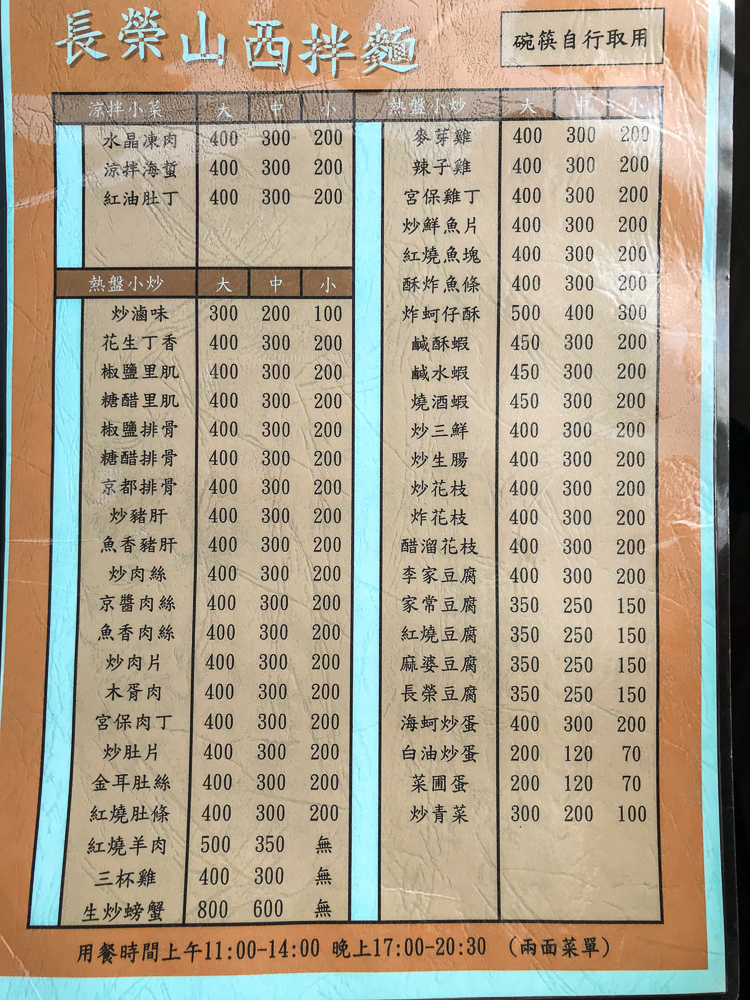 長榮山西拌麵
碗筷自行取用
涼拌小菜 大 中 小
水晶凍肉 400 300 200
涼拌海蜇 400 300 200
紅油肚丁 400 300 200
熱盤小炒 大 中 小
炒滷味 300 200 100
花生丁香 400 300 200
椒鹽里肌 400 300 200
糖醋里肌 400 300 200
椒鹽排骨 400 300 200
糖醋排骨 400 300 200
京都排骨 400 300 200
炒豬肝 400 300 200
魚香豬肝 400 300 200
炒肉絲 400 300 200
京醬肉絲 400 300 200
魚香肉絲 400 300 200
炒肉片 400 300 200
木胥肉 400 300 200
宮保肉丁 400 300 200
炒肚片 400 300 200
金耳肚絲 400 300 200
紅燒肚條 400 300 200
紅燒羊肉 500 350 無
三杯雞 400 300 無
生炒螃蟹 800 600 無
熱盤小炒 大 中 小
麥芽雞 400 300 200
辣子雞 400 300 200
宮保雞丁 400 300 200
炒鮮魚片 400 300 200
紅燒魚塊 400 300 200
酥炸魚條 400 300 200
炸蚵仔酥 500 400 300
鹹酥蝦 450 300 200
鹹水蝦 450 300 200
燒酒蝦 450 300 200
炒三鮮 400 300 200
炒生腸 400 300 200
炒花枝 400 300 200
炸花枝 400 300 200
醋溜花枝 400 300 200
李家豆腐 400 300 200
家常豆腐 350 250 150
紅燒豆腐 350 250 150
麻婆豆腐 350 250 150
長榮豆腐 350 250 150
海蚵炒蛋 400 300 200
白油炒蛋 200 120 70
菜圃蛋 200 120 70
炒青菜 300 200 100
用餐時間上午11:00-14:00 晚上17:00-20:30 (兩面菜單)